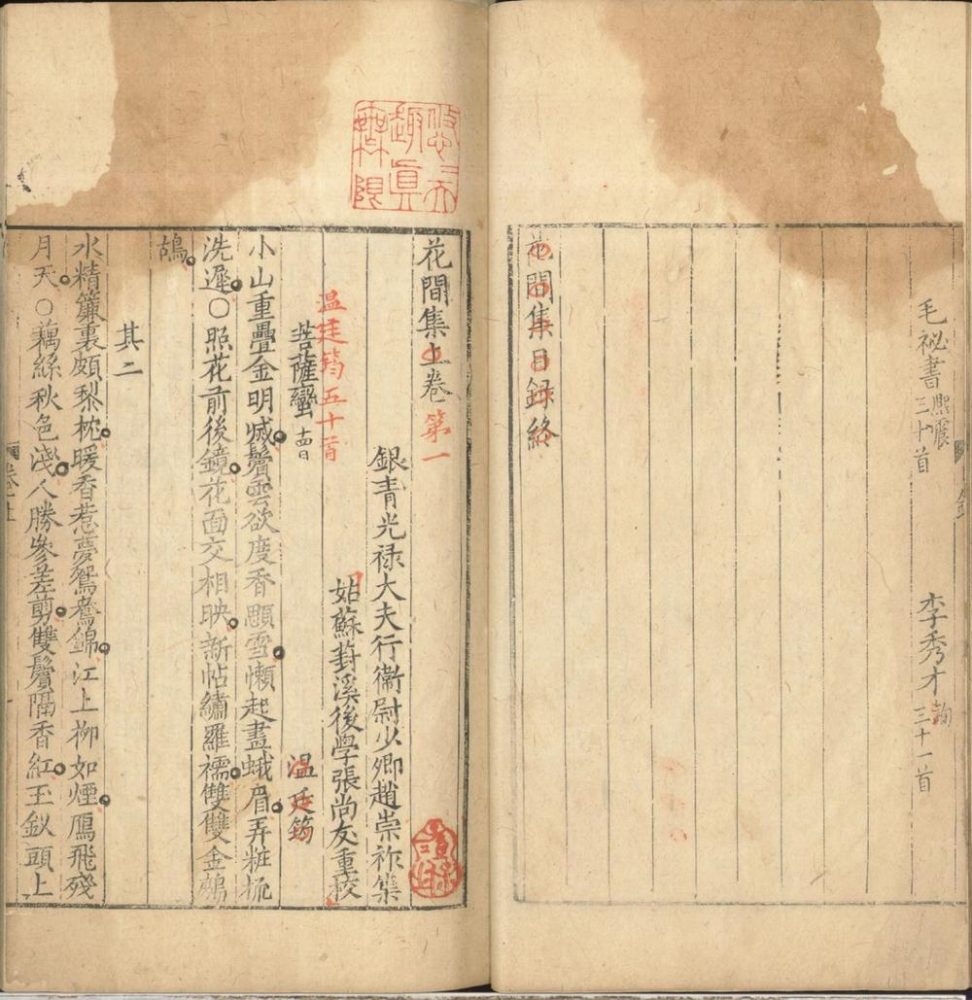 毛祕書熙震三十首 李秀才珣三十一首
花間集目録終
花間集上卷第一
銀青光禄大夫行衞尉少卿趙崇祚集
姑蘇葑溪後学張尚友重校
温廷筠五十首
菩薩蠻十四首 温廷筠
小山重疊金明㓕鬢雲欲度香顋雪懶起畫蛾眉弄粧梳
洗遲〇照花前後鏡花面交相映新帖繡羅襦雙雙金鷓
鴣
其二
水精簾裏頗梨枕暖香惹夢鴛鴦錦江上柳如煙鴈飛殘
月天〇藕絲秋色淺人勝參差剪雙鬢隔香紅玉釵頭上
卷上